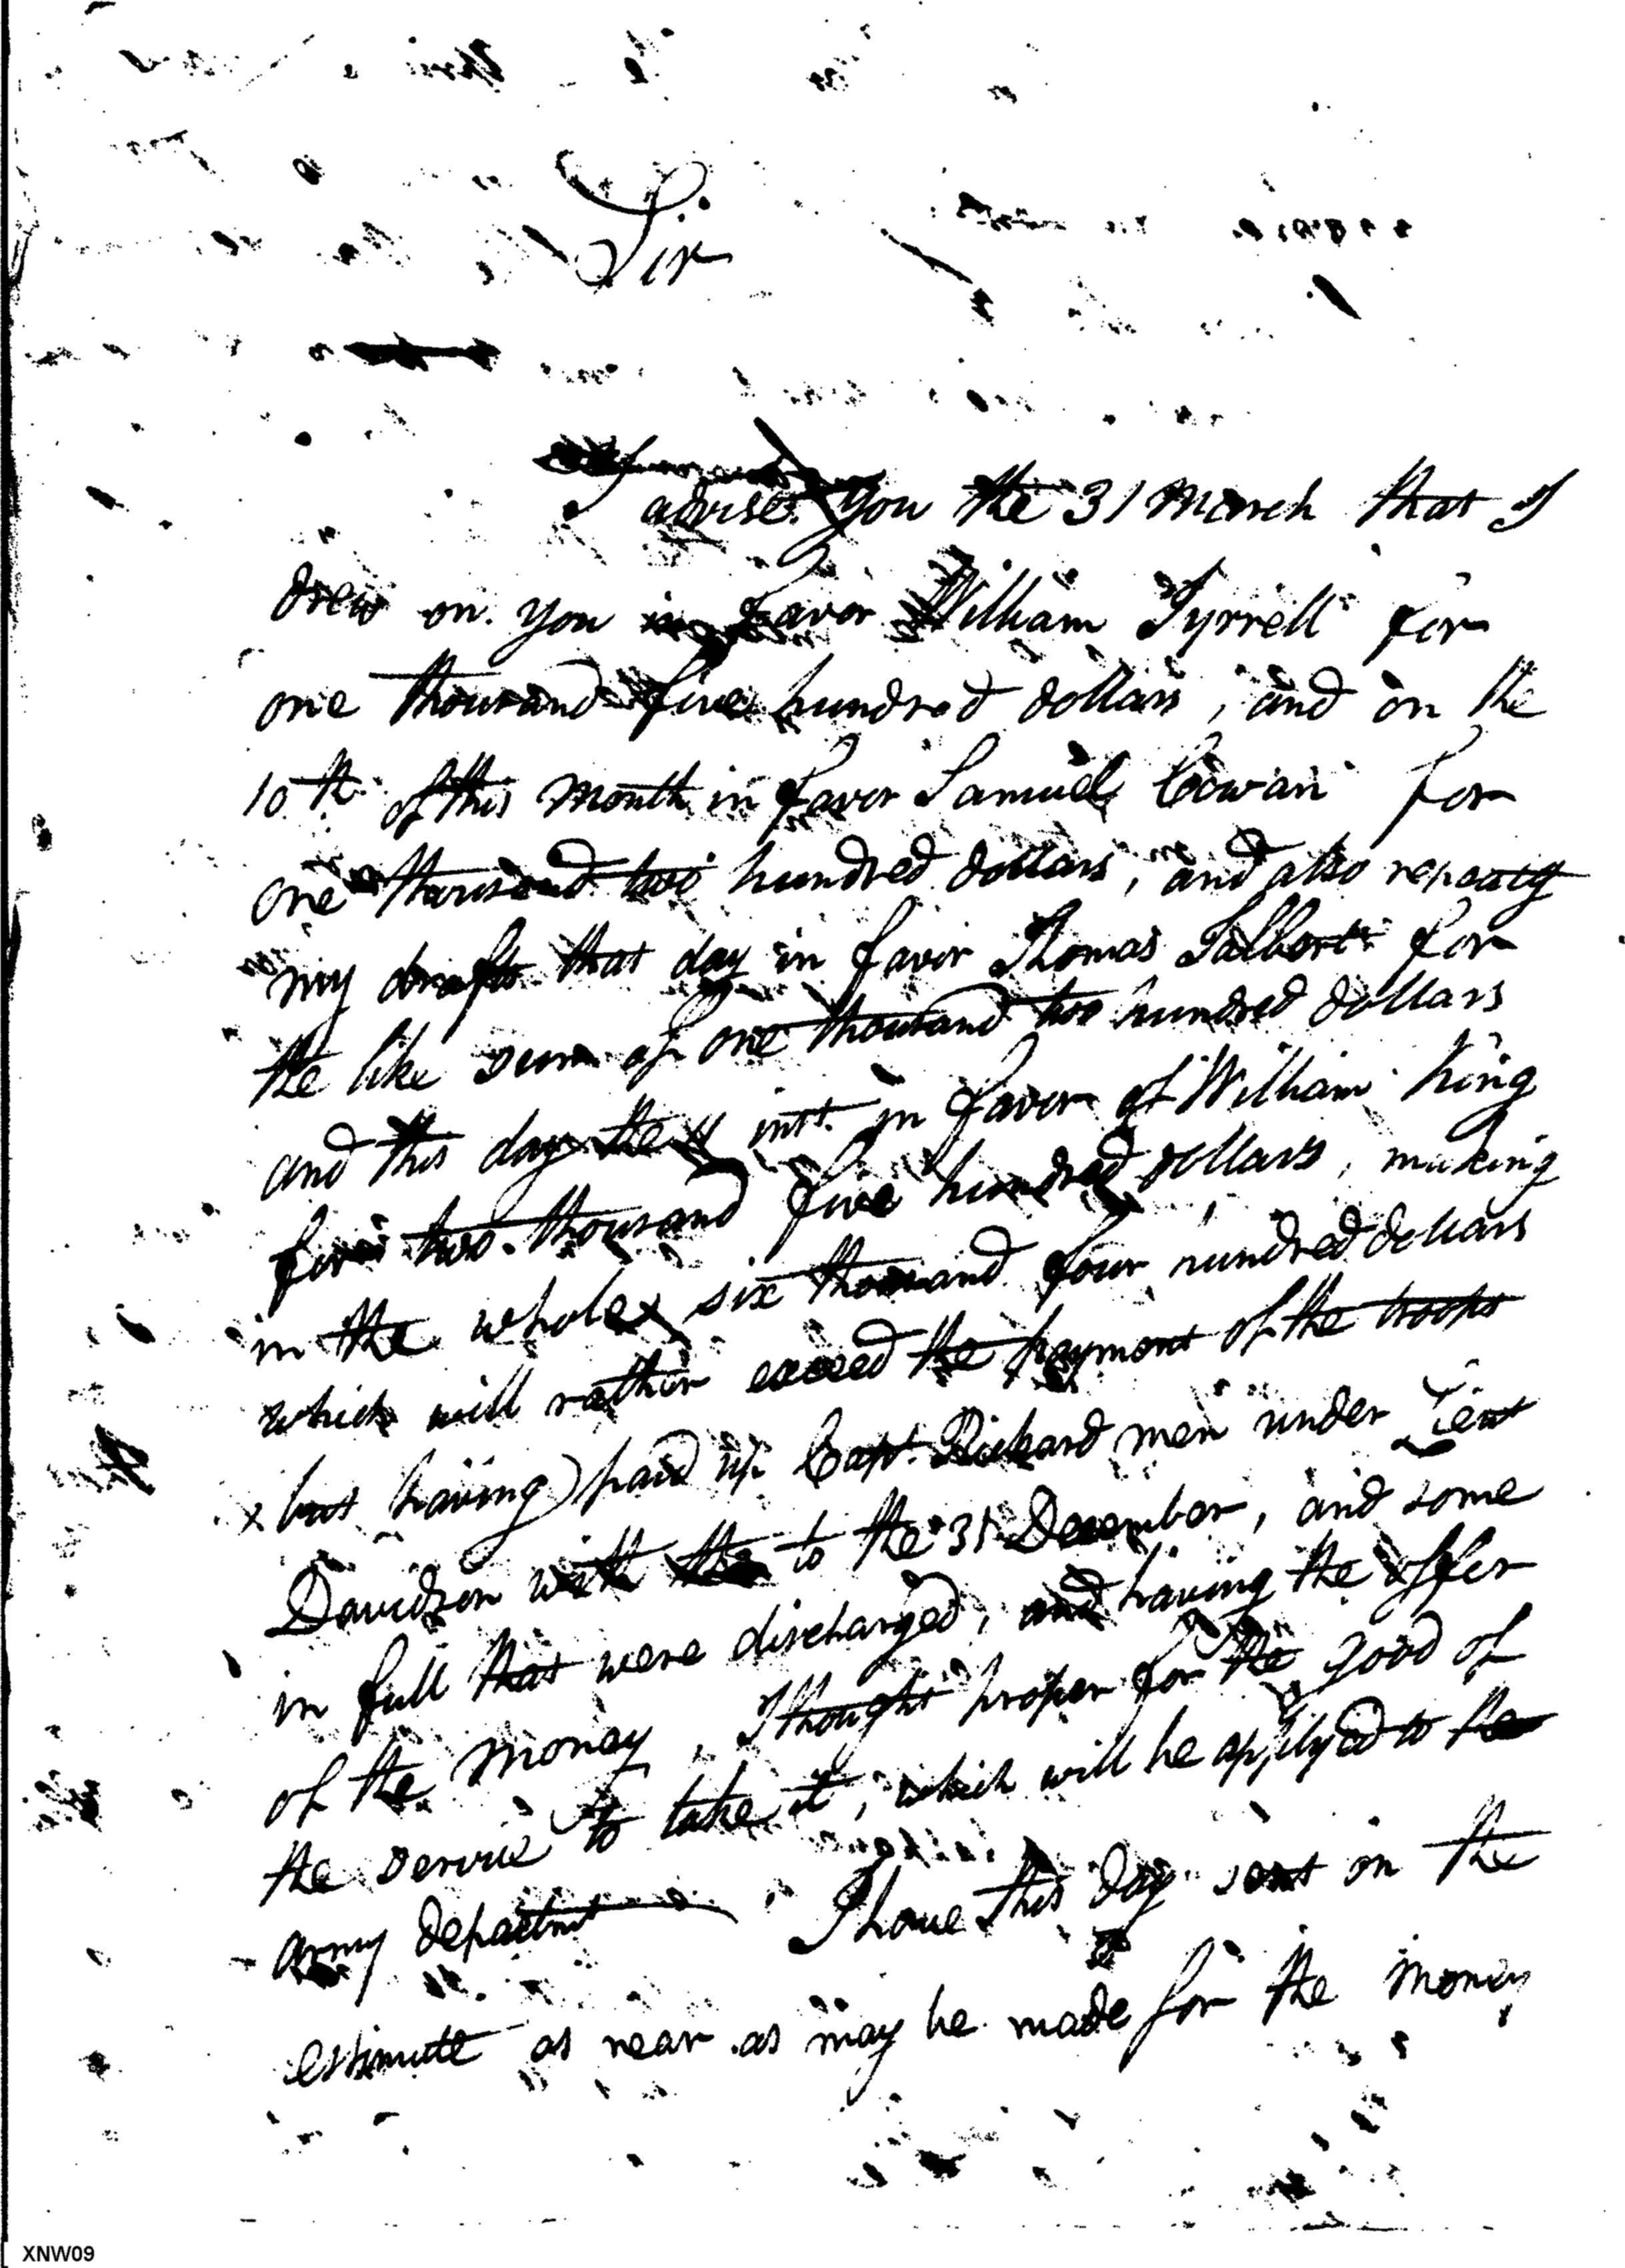 Sir
I advised you the 31 March that I
drew on you in favor William Tyrrell for
one thousand five hundred dollars, and on the
10th of this month in favor Samuel Cowan for
one thousand two hundred dollars, and also
my drafts that day in favor Thomas Talbert for
the like sum of one thousand two hundred dollars
and this day the inst. in favor of William King
for two thousand five hundred dollars, making
in the whole six thousand four hundred dollars
which will rather exceed the payment of the troops
x but having paid up Capt. Rickard men under Lieut
Davidson to the 31 December, and some
in full that were discharged, and having the offer
of the money, I thought proper for the good of
the service to take it, which will be applyed to the
army departmt I have this day sent on the
estimate as near as may be made for the money
XNW09